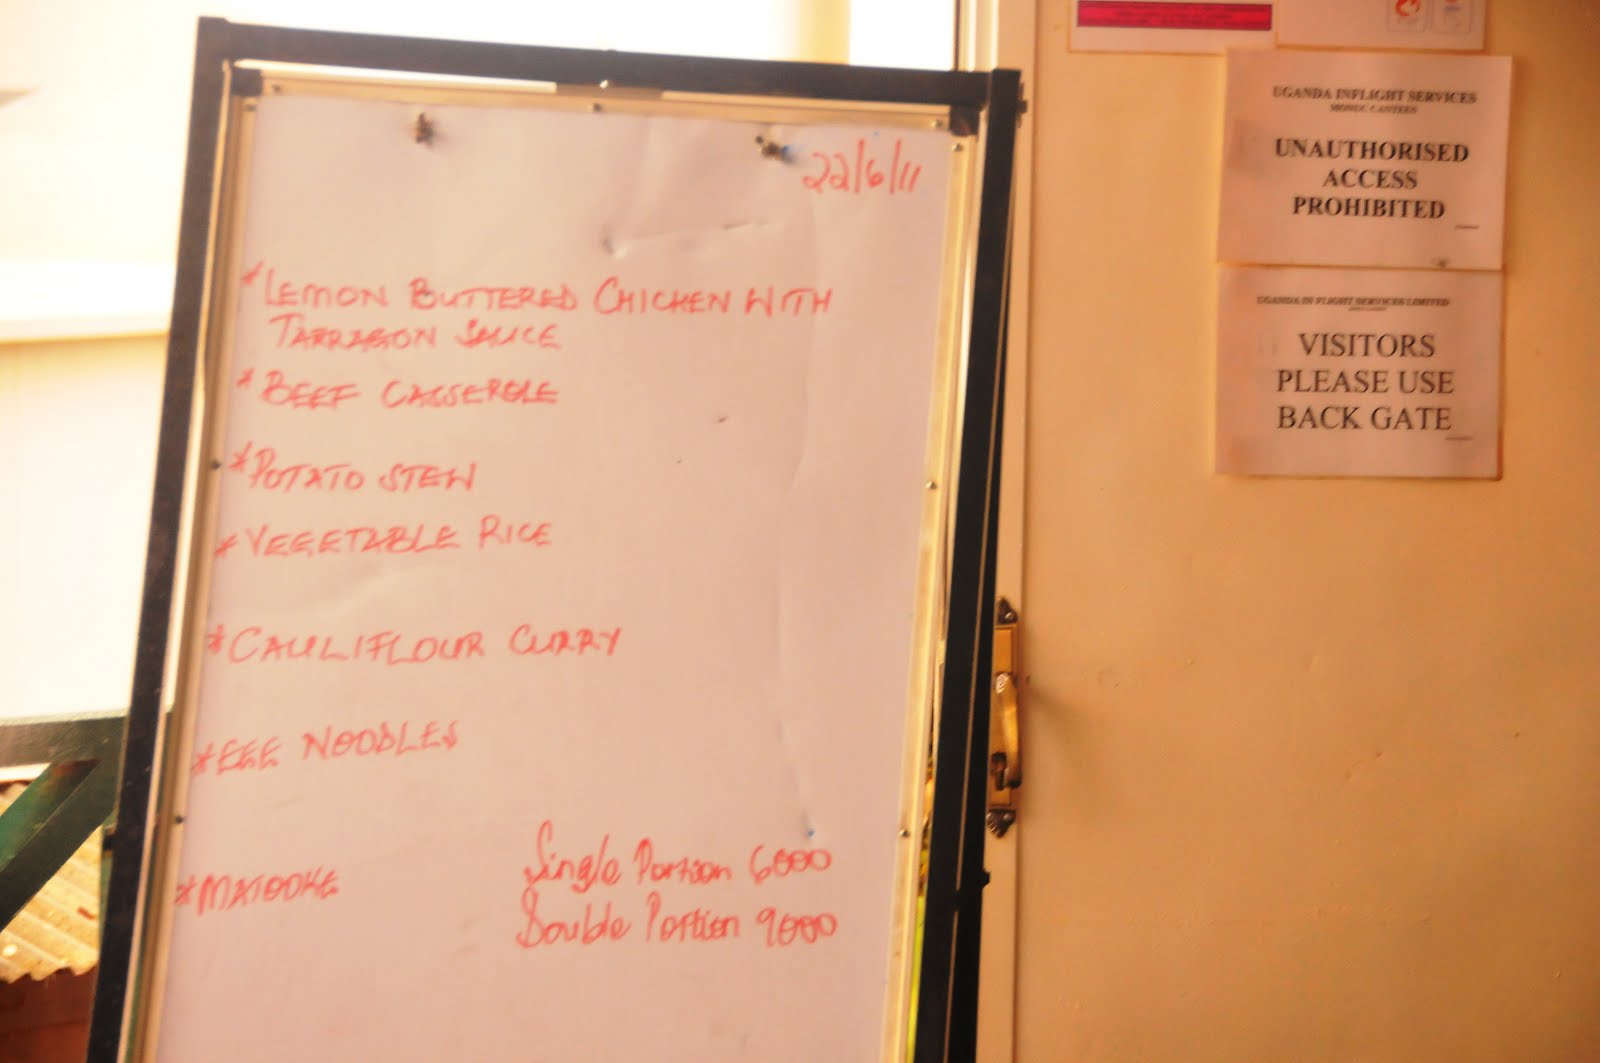 22/6/11
* LEMON BUTTERED CHICKEN WITH
TARRAGON SAUCE
* BEEF CASSEROLE
* POTATO STEW
* VEGETABLE RICE
* CAULIFLOUR CURRY
* EGG NOODLES
* MATOOKE
Single Portion 6000
Double Portion 9000
UGANDA INFLIGHT SERVICES
MONUC CANTEEN
UNAUTHORISED
ACCESS
PROHIBITED
UGANDA IN FLIGHT SERVICES LIMITED
VISITORS
PLEASE USE
BACK GATE